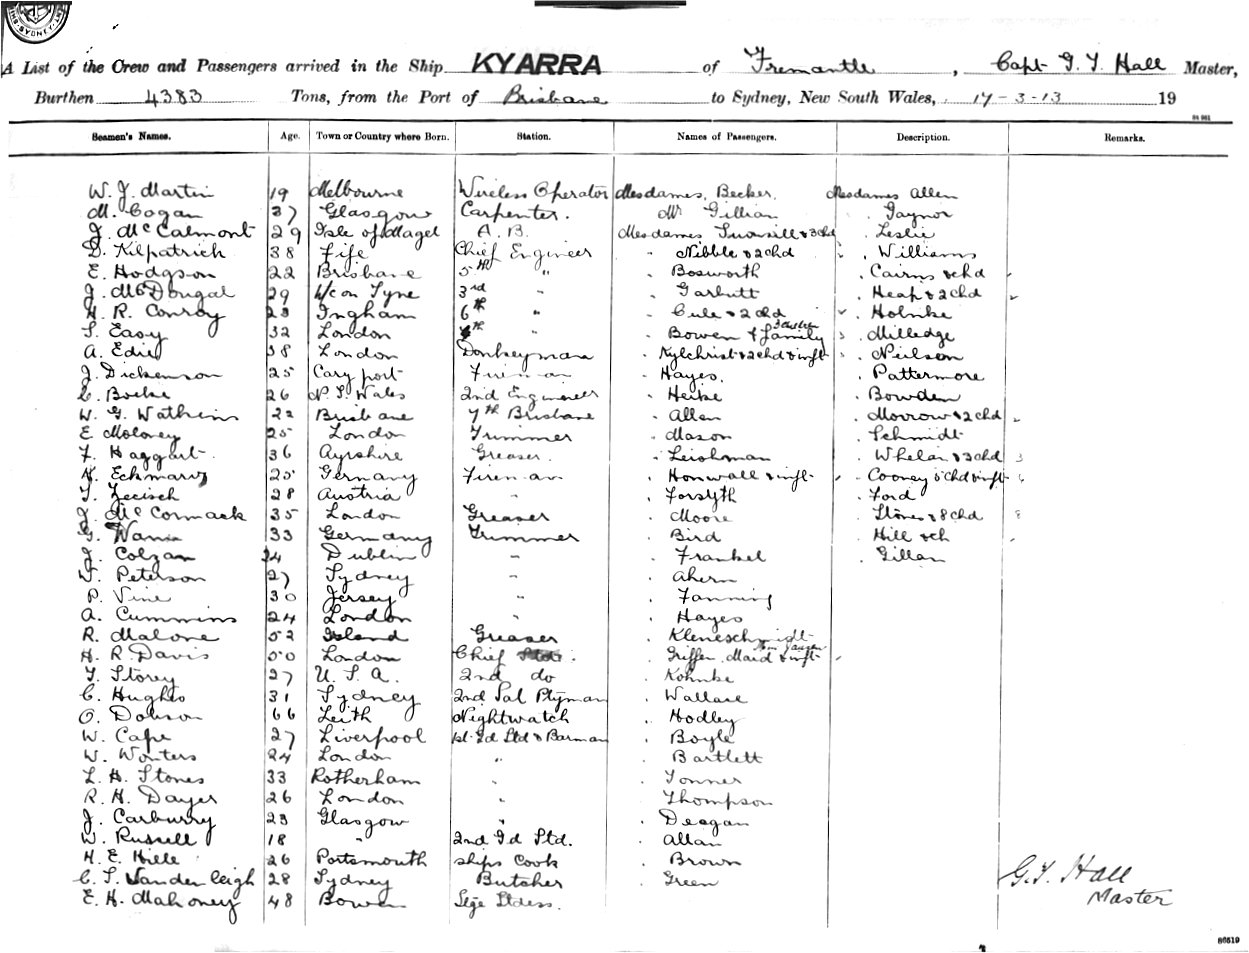 SYDNEY
A List of the Crew and Passengers arrived in the Ship KYARRA of Fremantle, Capt G. T. Hall Master,
Burthen 4383 Tons, from the Port of Brisbane to Sydney, New South Wales, 17-3-13 19
Seamen's Names. Age. Town or Country where Born. Station. Names of Passengers. Description. Remarks.
W. J. Martin 19 Melbourne Wireless Operator Mesdames. Becker. Mesdames Allen
M. Cogan 37 Glasgow Carpenter. Mr Gillian . Gaynor
J. McCalmont 29 Isle of Maget A.B. Mesdames & 3chd . Leslie
D. Kilpatrick 38 Fife Chief Engineer " Nibble & 2chd . Williams
E. Hodgson 22 Brisbane 5th " . Bosworth . Cairns & chd
J. McDougal 29 N/c on Tyne 3rd " . Garbutt . Heap & 2chd
H. R. Conroy 23 Ingham 6th " . Cule & 2chd . Holnke
S. Easy 32 London 4th " . Bowen & family . Milledge
A. Edie 38 London Donkeyman . Kylchrist & 2chd & inft . Neilson
J. Dickenson 25 Cary port Fireman . Hayes. . Pattermore
C. Boeke 26 N. S. Wales 2nd Engineer . Heike . Bowden
W. G. Wathins 22 Brisbane 7th Brisbane . Allen . Morrow & 2chd
E. Moloney 25 London Trimmer . Mason . Schmidt
F. Haggart. 36 Ayrshire Greaser. . Leishman . Whelan & 3chd
H. Eckmary 25 Germany Fireman . Honwall & inft . Cooney 5chd & inft
T. Zecisch 28 Austria " . Forsyth . Ford
J. McCormack 35 London Greaser . Moore . Stones & 8chd
G. Wania 33 Germany Trimmer . Bird . Hill & ch
J. Colgan 24 Dublin " . Frankel . Gillan
W. Peterson 27 Sydney " . Ahern
P. Vine 30 Jersey " . Fanning
A. Cummins 24 London " . Hayes
R. Malone 52 Island Greaser . Kleneschmidt
H. R. Davis 50 London Chief . . Griffen, Maid & inft
T. Storey 27 U. S. A. 2nd do . Kohnke
C. Hughes 31 Sydney 2nd Sal Ptyman . Wallace
O. Dobson 66 Leith Nightwatch . Hodley
W. Cape 27 Liverpool 1st Sd Std & Barman . Boyle
W. Wouters 24 London " . Bartlett
L. H. Stones 33 Rotherham " . Tonner
R. H. Dayer 26 London " . Thompson
J. Carburry 23 Glasgow " . Deagan
W. Russell 18 " 2nd Sd Std. . Allan
H. E. Hille 26 Portsmouth ships Cook . Brown
C. S. Vander Leigh 28 Sydney Butcher . Green
E. H. Mahoney 48 Bowen Stge Stdess.
G. T. Hall
Master
86519